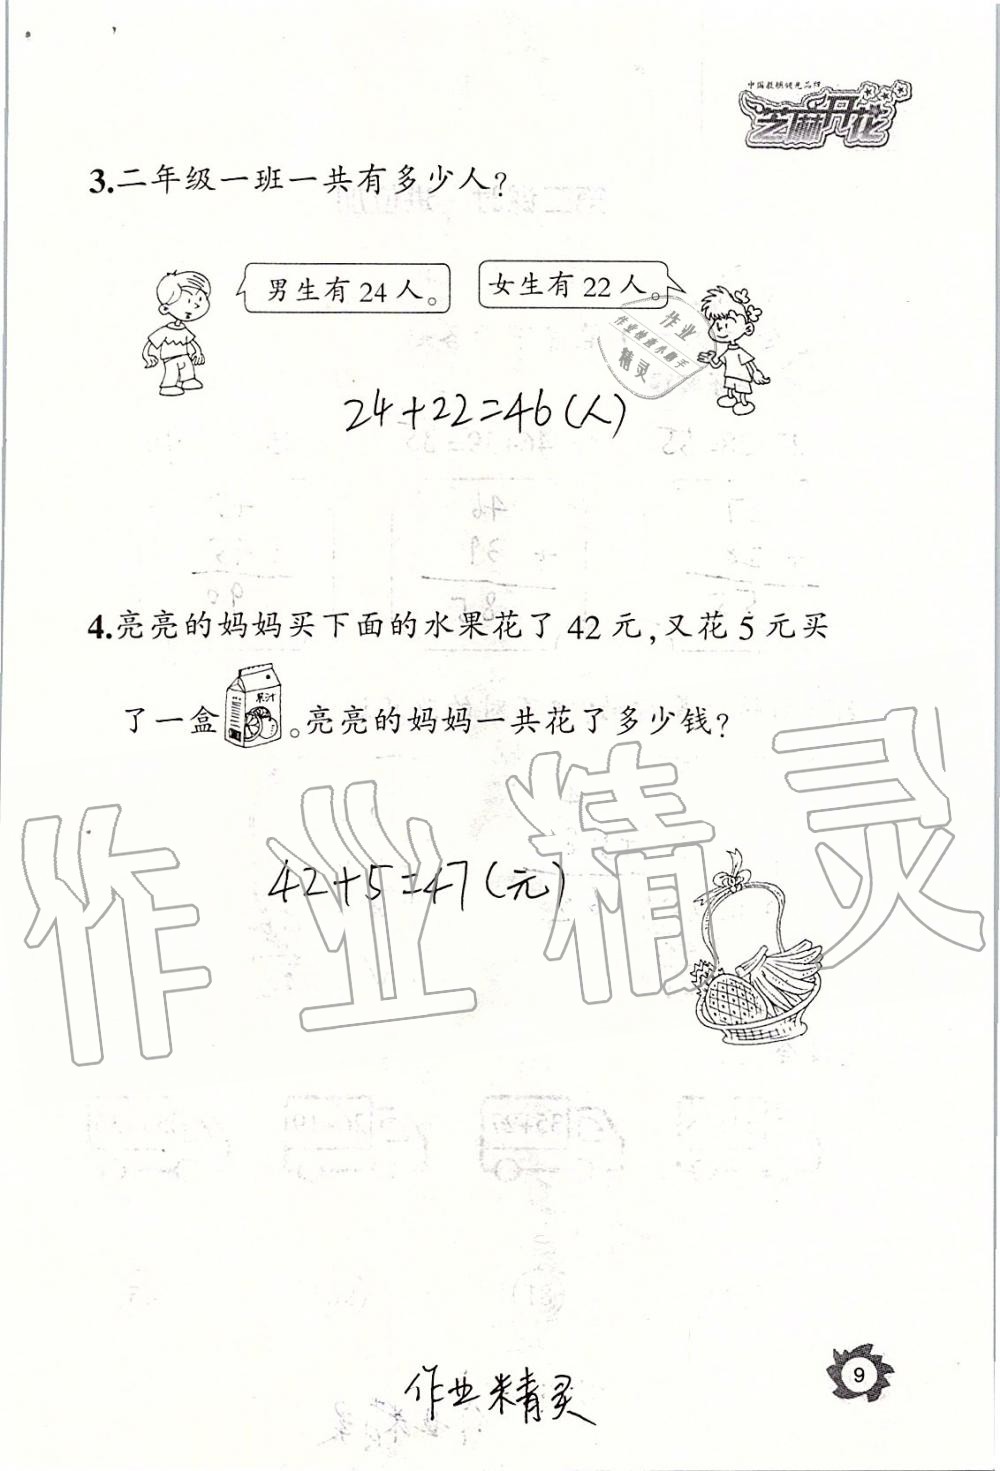 中国教辅领先品牌
芝麻开花
3.二年级一班一共有多少人?
男生有24人。
女生有22人。
作业
作业检查小助手
精灵
24+22=46(人)
4.亮亮的妈妈买下面的水果花了42元,又花5元买
了一盒
果汁
。亮亮的妈妈一共花了多少钱?
作业精灵
42+5=47(元)
9
作业精灵